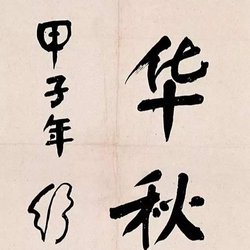 华秋
甲子年